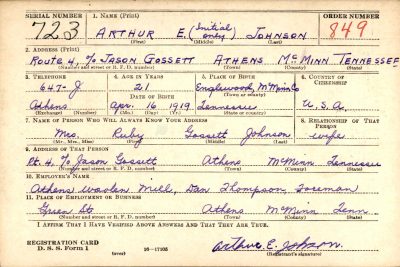 SERIAL NUMBER 1. NAME (Print) ORDER NUMBER
723 ARTHUR E. (Initial only) JOHNSON 849
(First) (Middle) (Last)
2. ADDRESS (Print)
Route 4, % JASON GOSSETT ATHENS McMINN TENNESSEE
(Number and street or R. F. D. number) (Town) (County) (State)
3. TELEPHONE 4. AGE IN YEARS 5. PLACE OF BIRTH 6. COUNTRY OF CITIZENSHIP
647-J 21 Englewood, McMinn Co
DATE OF BIRTH (Town or county)
Athens Apr. 16 1919 Tennessee U.S.A.
(Exchange) (Number) (Mo.) (Day) (Yr.) (State or country)
7. NAME OF PERSON WHO WILL ALWAYS KNOW YOUR ADDRESS 8. RELATIONSHIP OF THAT PERSON
Mrs. Ruby Gossett Johnson wife
(Mr., Mrs., Miss) (First) (Middle) (Last)
9. ADDRESS OF THAT PERSON
Rt. 4, % Jason Gossett Athens McMinn. Tennessee
(Number and street or R. F. D. number) (Town) (County) (State)
10. EMPLOYER'S NAME
Athens Woolen Mill, Dan Thompson, Foreman
11. PLACE OF EMPLOYMENT OR BUSINESS
Green St Athens McMinn Tenn
(Number and street or R. F. D. number) (Town) (County) (State)
I AFFIRM THAT I HAVE VERIFIED ABOVE ANSWERS AND THAT THEY ARE TRUE.
REGISTRATION CARD
D. S. S. Form 1 (over) 16—17105 Arthur E. Johnson.
(Registrant's signature)